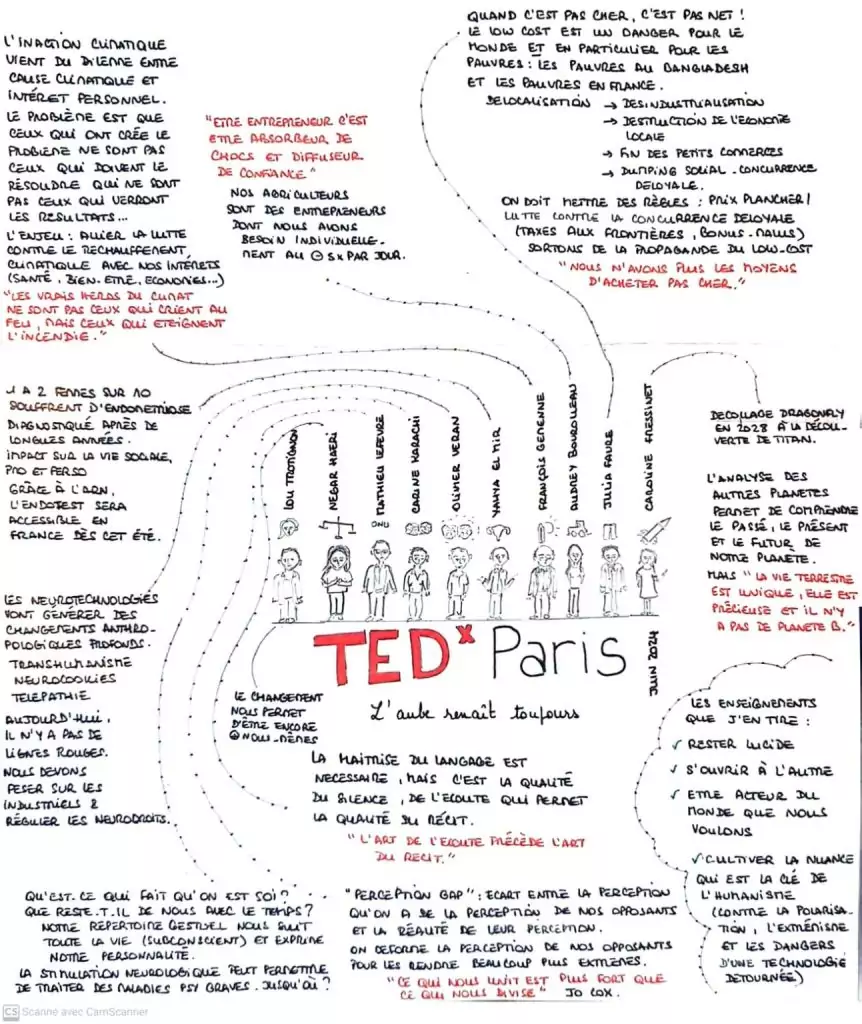 L'INACTION CLIMATIQUE
VIENT DU DILEMME ENTRE
CAUSE CLIMATIQUE ET
INTÉRÊT PERSONNEL.
LE PROBLÈME EST QUE
CEUX QUI ONT CRÉE LE
PROBLÈME NE SONT PAS
CEUX QUI DOIVENT LE
RÉSOUDRE QUI NE SONT
PAS CEUX QUI VERRONT
LES RESULTATS...
L'ENJEU : ALLIER LA LUTTE
CONTRE LE RECHAUFFEMENT
CLIMATIQUE AVEC NOS INTÉRÊTS
(SANTÉ, BIEN-ETRE, ECONOMIES...)
"LES VRAIS HEROS DU CLIMAT
NE SONT PAS CEUX QUI CRIENT AU
FEU, MAIS CEUX QUI ETEIGNENT
L'INCENDIE."
"ETRE ENTREPRENEUR C'EST
ETRE ABSORBEUR DE
CHOCS ET DIFFUSEUR
DE CONFIANCE"
NOS AGRICULTEURS
SONT DES ENTREPRENEURS
DONT NOUS AVONS
BESOIN INDIVIDUELLE-
MENT AU ⊖ 5X PAR JOUR.
QUAND C'EST PAS CHER, C'EST PAS NET !
LE LOW COST EST UN DANGER POUR LE
MONDE ET EN PARTICULIER POUR LES
PAUVRES : LES PAUVRES AU BANGLADESH
ET LES PAUVRES EN FRANCE.
DELOCALISATION → DESINDUSTRIALISATION
→ DESTRUCTION DE L'ECONOMIE
LOCALE
→ FIN DES PETITS COMMERCES
→ DUMPING SOCIAL - CONCURRENCE
DELOYALE.
ON DOIT METTRE DES RÈGLES : PRIX PLANCHER /
LUTTE CONTRE LA CONCURRENCE DELOYALE
(TAXES AUX FRONTIÈRES, BONUS-MALUS)
SORTONS DE LA PROPAGANDE DU LOW-COST
"NOUS N'AVONS PLUS LES MOYENS
D'ACHETER PAS CHER."
1 A 2 FEMMES SUR 10
SOUFFRENT D'ENDOMETRIOSE
DIAGNOSTIQUÉ APRÈS DE
LONGUES ANNÉES.
IMPACT SUR LA VIE SOCIALE,
PRO ET PERSO
GRÂCE À L'ARN,
L'ENDOTEST SERA
ACCESSIBLE EN
FRANCE DÈS CET ÉTÉ.
LOU TROTIGNON
NEGAR HAERI
MATHIEU LEFEVRE
CARINE KARACHI
OLIVIER VERAN
YAHYA EL MIR
FRANÇOIS GEMENNE
AUDREY BOUROLLEAU
JULIA FAURE
CAROLINE FREISSINET
ONU
DECOLLAGE DRAGONFLY
EN 2028 À LA DÉCOU-
VERTE DE TITAN.
L'ANALYSE DES
AUTRES PLANÈTES
PERMET DE COMPRENDRE
LE PASSÉ, LE PRÉSENT
ET LE FUTUR DE
NOTRE PLANÈTE.
MAIS "LA VIE TERRESTRE
EST UNIQUE, ELLE EST
PRÉCIEUSE ET IL N'Y
A PAS DE PLANETE B."
LES NEUROTECHNOLOGIES
VONT GENERER DES
CHANGEMENTS ANTHRO-
POLOGIQUES PROFONDS.
TRANSHUMANISME
NEUROCOOKIES
TELEPATHIE
AUJOURD'HUI,
IL N'Y A PAS DE
LIGNES ROUGES.
NOUS DEVONS
PESER SUR LES
INDUSTRIELS &
RÉGULER LES NEURODROITS.
TEDx Paris
JUIN 2024
L'aube renaît toujours
LE CHANGEMENT
NOUS PERMET
D'ÊTRE ENCORE
⊕ NOUS-MÊMES
LA MAITRISE DU LANGAGE EST
NECESSAIRE, MAIS C'EST LA QUALITÉ
DU SILENCE, DE L'ECOUTE QUI PERMET
LA QUALITÉ DU RÉCIT.
"L'ART DE L'ECOUTE PRÉCÈDE L'ART
DU RECIT."
LES ENSEIGNEMENTS
QUE J'EN TIRE :
✓ RESTER LUCIDE
✓ S'OUVRIR À L'AUTRE
✓ ETRE ACTEUR DU
MONDE QUE NOUS
VOULONS
✓ CULTIVER LA NUANCE
QUI EST LA CLÉ DE
L'HUMANISME
(CONTRE LA POLARISA-
TION, L'EXTRÉMISME
ET LES DANGERS
D'UNE TECHNOLOGIE
DÉTOURNÉE)
QU'EST-CE QUI FAIT QU'ON EST SOI ?
QUE RESTE-T-IL DE NOUS AVEC LE TEMPS ?
NOTRE RÉPERTOIRE GESTUEL NOUS SUIT
TOUTE LA VIE (SUBCONSCIENT) ET EXPRIME
NOTRE PERSONNALITÉ.
LA STIMULATION NEUROLOGIQUE PEUT PERMETTRE
DE TRAITER DES MALADIES PSY GRAVES. JUSQU'OÙ ?
"PERCEPTION GAP" : ECART ENTRE LA PERCEPTION
QU'ON A DE LA PERCEPTION DE NOS OPPOSANTS
ET LA RÉALITÉ DE LEUR PERCEPTION.
ON DEFORME LA PERCEPTION DE NOS OPPOSANTS
POUR LES RENDRE BEAUCOUP PLUS EXTRÊMES.
"CE QUI NOUS UNIT EST PLUS FORT QUE
CE QUI NOUS DIVISE" JO COX.
CS Scanné avec CamScanner